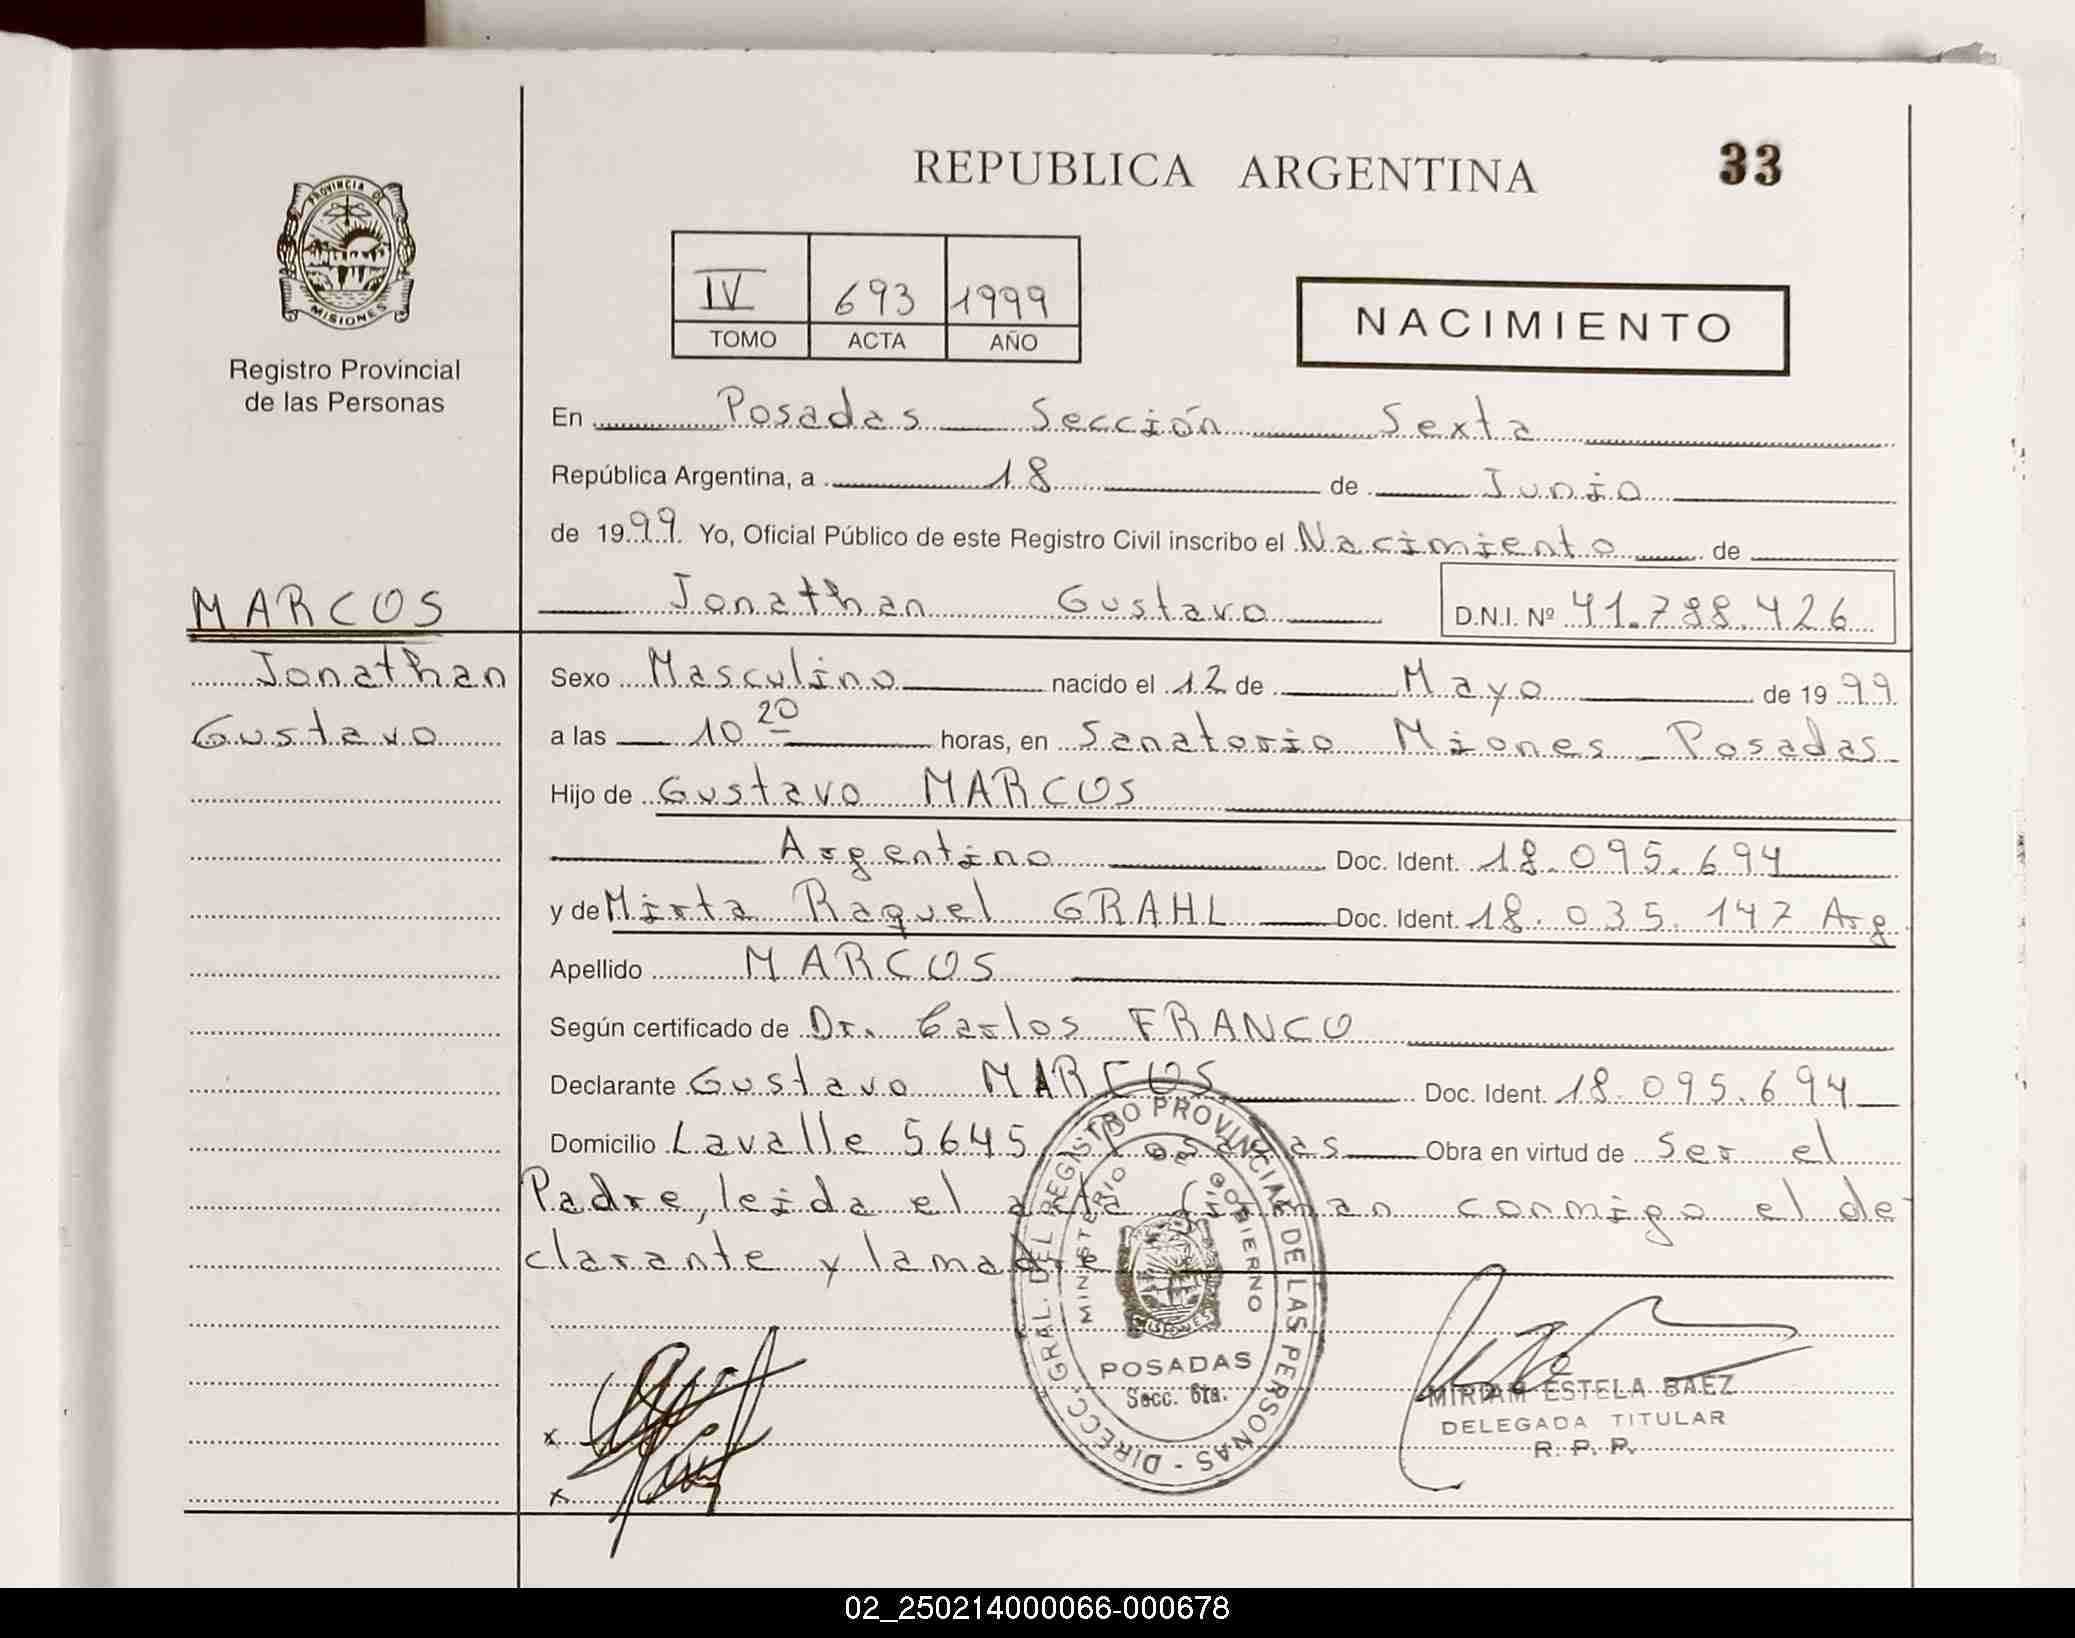 REPUBLICA ARGENTINA
33
PROVINCIA DE
MISIONES
Registro Provincial
de las Personas
IV 693 1999
TOMO ACTA AÑO
NACIMIENTO
En Posadas Sección Sexta
República Argentina, a 18 de Junio
de 1999 Yo, Oficial Público de este Registro Civil inscribo el Nacimiento de
MARCOS
Jonathan Gustavo D.N.I. Nº 41.788.426
Jonathan
Gustavo
Sexo Masculino nacido el 12 de Mayo de 1999
a las 10 20 horas, en Sanatorio Miones Posadas
Hijo de Gustavo MARCOS
Argentino Doc. Ident. 18.095.694
y de Mirta Raquel GRAHL Doc. Ident. 18.035.147 Arg
Apellido MARCOS
Según certificado de Dr. Carlos FRANCO
Declarante Gustavo MARCOS Doc. Ident. 18.095.694
Domicilio Lavalle 5645 Posadas Obra en virtud de Ser el
Padre, leida el acta firman conmigo el de
clarante y la madre
DIRECC. GRAL. DEL REGISTRO PROVINCIAL DE LAS PERSONAS -
MINISTERIO DE GOBIERNO
MISIONES
POSADAS
Secc. 6ta.
MIRIAM ESTELA BAEZ
DELEGADA TITULAR
R. P. P.
x
x
02_250214000066-000678